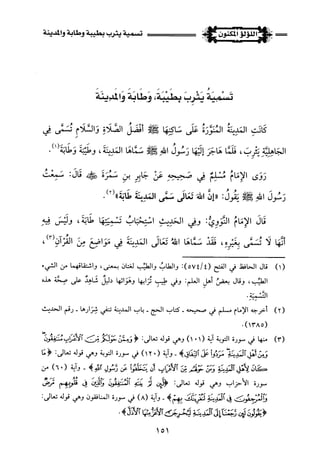 اللؤلؤ المكنون
تسمية يثرب بطيبة وطابة والمدينة
تَسْمِيَةُ يَثْرِبَ بِطَيْبَةَ، وَطَابَةَ وَالمَدِينَةَ
كَانَتِ المَدِينَةُ المُنَوَّرَةُ عَلَى سَاكِنِهَا ﷺ أَفْضَلُ الصَّلَاةِ وَالسَّلَامِ تُسَمَّى فِي
الجَاهِلِيَّةِ يَثْرِبَ، فَلَمَّا هَاجَرَ إِلَيْهَا رَسُولُ اللهِ ﷺ سَمَّاهَا المَدِينَةَ، وَطَيْبَةَ وَطَابَةَ(١).
رَوَى الإِمَامُ مُسْلِمٌ فِي صَحِيحِهِ عَنْ جَابِرِ بنِ سَمُرَةَ ﵁ قَالَ: سَمِعْتُ
رَسُولَ اللهِ ﷺ يَقُولُ: «إِنَّ اللهَ تَعَالَى سَمَّى المَدِينَةَ طَابَةَ»(٢).
قَالَ الإِمَامُ النَّوَوِيُّ: وَفِي الحَدِيثِ اسْتِحْبَابُ تَسْمِيَتِهَا طَابَةَ، وَلَيْسَ فِيهِ
أَنَّهَا لَا تُسَمَّى بِغَيْرِهِ، فَقَدْ سَمَّاهَا اللهُ تَعَالَى المَدِينَةَ فِي مَوَاضِعَ مِنَ القُرْآنِ(٣)،
(١) قال الحافظ في الفتح (٥٧٤/٤): والطابُ والطيبُ لغتان بمعنى، واشتقاقهما من الشيء
الطيب، وقال بعضُ أهل العلم: وفي طيب تُرابها وهَوَائها دليلٌ شاهدٌ على صحة هذه
التَّسْمِيَة.
(٢) أخرجه الإمام مسلم في صحيحه - كتاب الحج - باب المدينة تنفي شِرَارها - رقم الحديث
(١٣٨٥).
(٣) منها في سورة التوبة آية (١٠١) وهي قوله تعالى: ﴿وَمِمَّنْ حَوْلَكُم مِّنَ الْأَعْرَابِ مُنَافِقُونَ
وَمِنْ أَهْلِ الْمَدِينَةِ مَرَدُوا عَلَى النِّفَاقِ﴾ - وآية (١٢٠) في سورة التوبة وهي قوله تعالى: ﴿مَا
كَانَ لِأَهْلِ الْمَدِينَةِ وَمَنْ حَوْلَهُم مِّنَ الْأَعْرَابِ أَن يَتَخَلَّفُوا عَن رَّسُولِ اللَّهِ﴾ - وآية (٦٠) من
سورة الأحزاب وهي قوله تعالى: ﴿لَّئِن لَّمْ يَنتَهِ الْمُنَافِقُونَ وَالَّذِينَ فِي قُلُوبِهِم مَّرَضٌ
وَالْمُرْجِفُونَ فِي الْمَدِينَةِ لَنُغْرِيَنَّكَ بِهِمْ﴾ - وآية (٨) في سورة المنافقون وهي قوله تعالى:
﴿يَقُولُونَ لَئِن رَّجَعْنَا إِلَى الْمَدِينَةِ لَيُخْرِجَنَّ الْأَعَزُّ مِنْهَا الْأَذَلَّ﴾.
١٥١